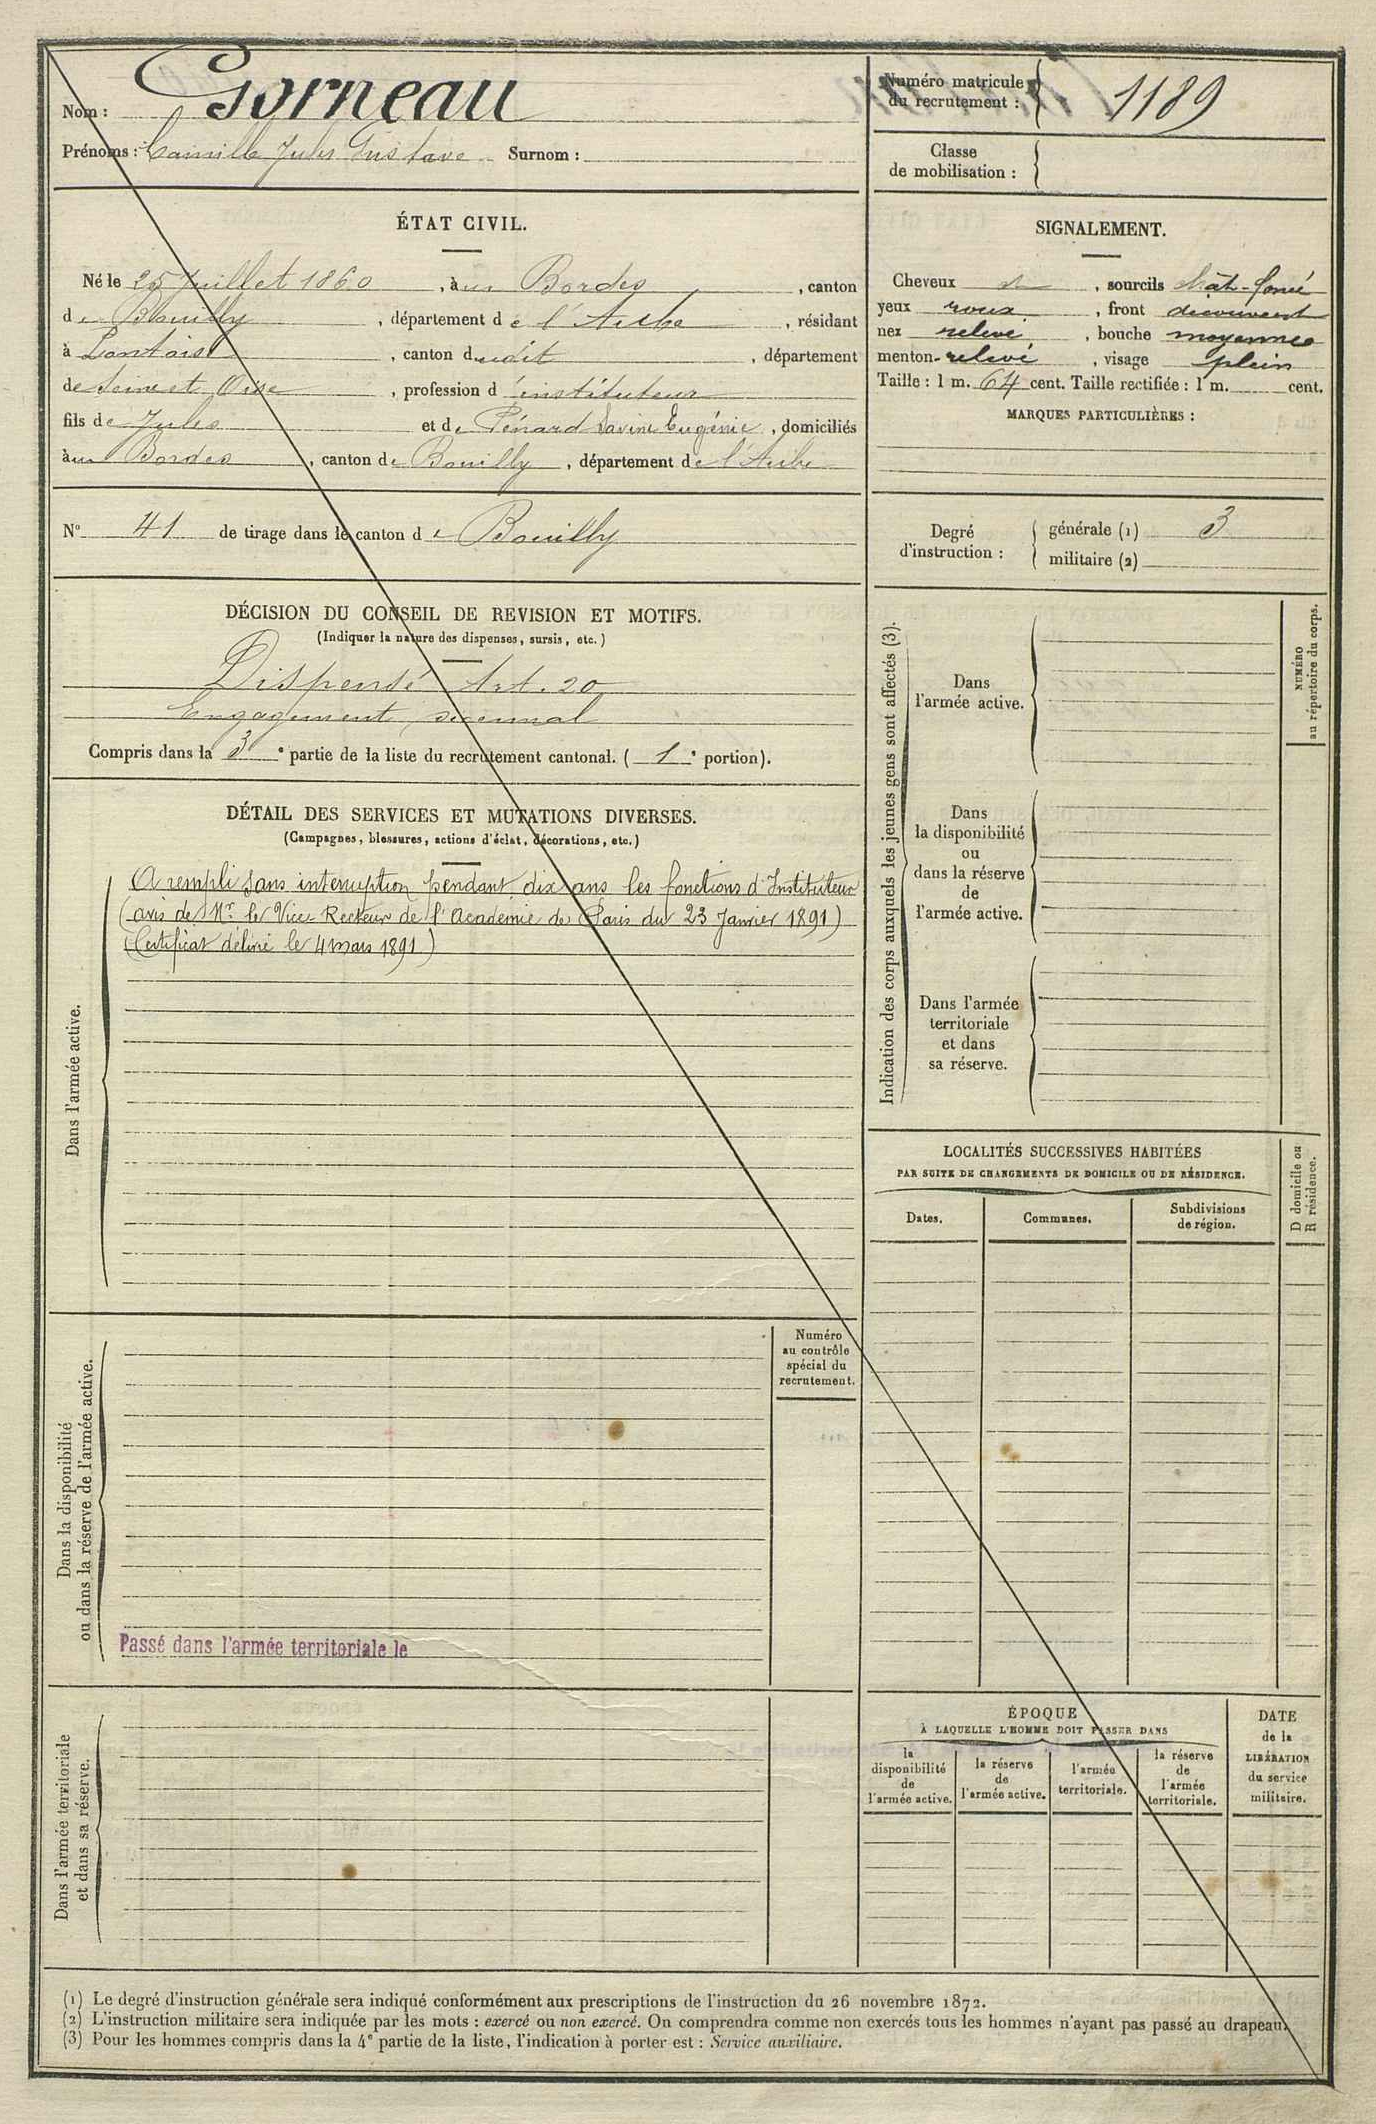 Nom : Gorneau
Prénoms : Camille Jules Gustave Surnom :
Numéro matricule du recrutement : 1189
Classe de mobilisation :
ÉTAT CIVIL.
Né le 25 Juillet 1860, à aux Bordes, canton
de Bouilly, département de l'Aube, résidant
à, canton dudit, département
de Seine et Oise, profession d'instituteur
fils de Jules et de Pénard Savine Eugénie, domiciliés
à aux Bordes, canton de Bouilly, département de l'Aube
N° 41 de tirage dans le canton de Bouilly
SIGNALEMENT.
Cheveux, sourcils chât-foncé
yeux roux, front découvert
nez relevé, bouche moyenne
menton relevé, visage plein
Taille : 1 m. 64 cent. Taille rectifiée : 1 m. cent.
MARQUES PARTICULIÈRES :
Degré d'instruction :
générale (1) 3
militaire (2)
DÉCISION DU CONSEIL DE REVISION ET MOTIFS.
(Indiquer la nature des dispenses, sursis, etc.)
Dispensé Art. 20
Engagement décennal
Compris dans la 3e partie de la liste du recrutement cantonal. ( 1e portion).
DÉTAIL DES SERVICES ET MUTATIONS DIVERSES.
(Campagnes, blessures, actions d'éclat, décorations, etc.)
Dans l'armée active.
A rempli sans interruption pendant dix ans les fonctions d'Instituteur
(avis de Mr. le Vice-Recteur de l'Académie de Paris du 23 Janvier 1891)
(Certificat délivré le 4 mars 1891)
Dans la disponibilité
ou dans la réserve de l'armée active.
Numéro
au contrôle
spécial du
recrutement.
Passé dans l'armée territoriale le
Dans l'armée territoriale
et dans sa réserve.
Indication des corps auxquels les jeunes gens sont affectés (3).
Dans
l'armée active.
Dans
la disponibilité
ou
dans la réserve
de
l'armée active.
Dans l'armée
territoriale
et dans
sa réserve.
NUMÉRO
au répertoire du corps.
LOCALITÉS SUCCESSIVES HABITÉES
PAR SUITE DE CHANGEMENTS DE DOMICILE OU DE RÉSIDENCE.
Dates.
Communes.
Subdivisions
de région.
D domicile ou
R résidence.
ÉPOQUE
À LAQUELLE L'HOMME DOIT PASSER DANS
la
disponibilité
de
l'armée active.
la réserve
de
l'armée active.
l'armée
territoriale.
la réserve
de
l'armée
territoriale.
DATE
de la
LIBÉRATION
du service
militaire.
(1) Le degré d'instruction générale sera indiqué conformément aux prescriptions de l'instruction du 26 novembre 1872.
(2) L'instruction militaire sera indiquée par les mots : exercé ou non exercé. On comprendra comme non exercés tous les hommes n'ayant pas passé au drapeau.
(3) Pour les hommes compris dans la 4e partie de la liste, l'indication à porter est : Service auxiliaire.